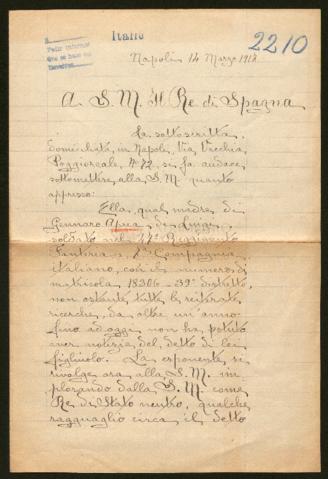 Italie
2210
Pedir informes
Que se hace su
Napoli 14 Marzo 1918
A S. M. Il Re di Spagna
La sottoscritta,
domiciliata, in Napoli, Via Vecchia
Poggioreale, N° 72, si fa audace,
sottomettere alla S. M. quanto
appresso:
Ella, qual madre di
Gennaro Aprea di Luigi
soldato nel 47° Reggimento
Fanteria - 7ª Compagnia
italiano, con il numero di
matricola 18306 - 39° distretto,
non ostante tutte le reiterate
ricerche, da oltre un anno
fino ad oggi non ha potuto
aver notizie del detto di lei
figliuolo. La esponente si
rivolge ora alla S. M. im
plorando dalla S. M. come
Re di Stato neutro, qualche
ragguaglio circa il detto